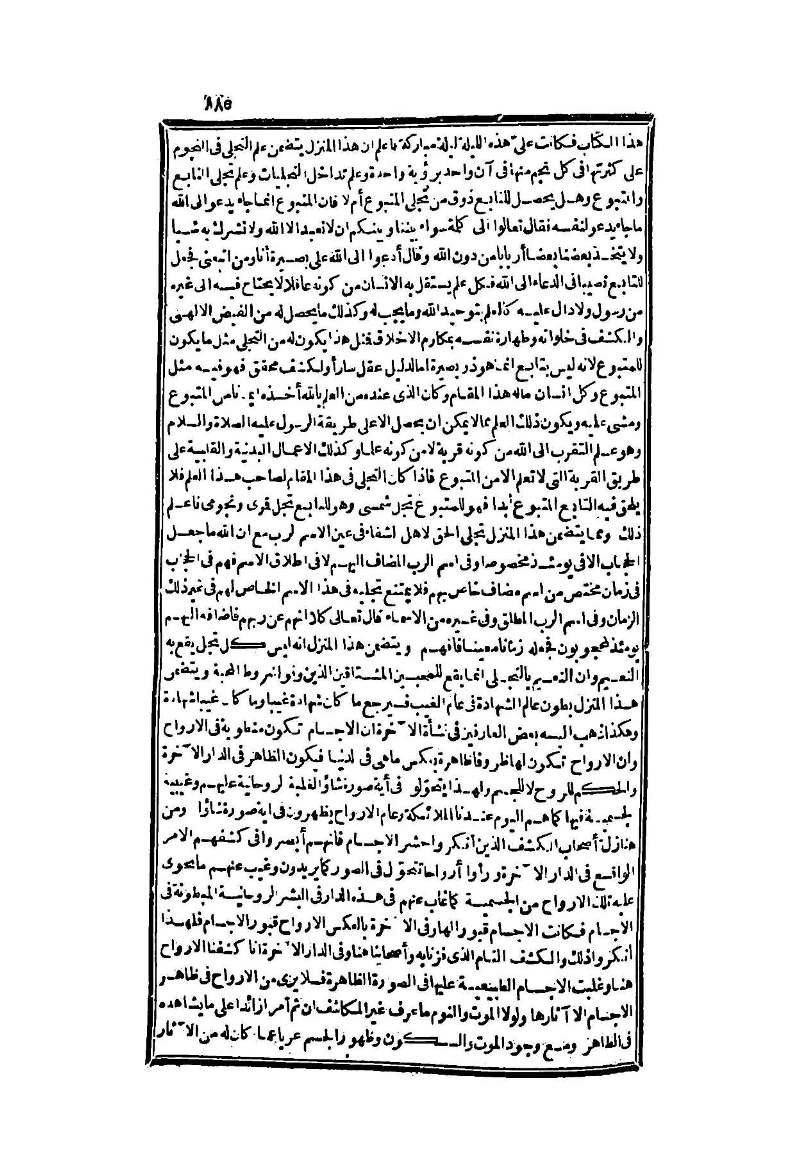 ٨٨٥
هذا الكتاب فكانت على هذه الليلة ليلة مباركة فاعلم ان هذا المنزل يتضمن علم التجلى فى النجوم
على كثرتها فى كل نجم منها فى آن واحد برؤية واحدة وعلم تداخل التجليات وعلم تجلى التابع
والمتبوع وهل يحصل للتابع ذوق من تجلى المتبوع أم لا فان المتبوع انما جاء يدعو الى الله
ما جاء يدعو لنفسه فقال تعالوا الى كلمة سواء بيننا وبينكم ان لا نعبد الا الله ولا نشرك به شيأ
ولا يتخذ بعضنا بعضا أربابا من دون الله وقال أدعوا الى الله على بصيرة أنا ومن اتبعنى فجعل
للتابع نصيبا فى الدعاء الى الله فكل علم يستقل به الانسان من كونه عاقلا لا يحتاج فيه الى غيره
من رسول ولا دال عليه كالعلم بتوحيد الله وما يجب له وكذلك ما يحصل له من الفيض الالهى
والكشف فى خلواته وطهارة نفسه بمكارم الاخلاق فمثل هذا يكون له من التجلى مثل ما يكون
للمتبوع لانه ليس بتابع انما هو ذو بصيرة اما لدليل عقل سار أو لكشف محقق فهو فيه مثل
المتبوع وكل انسان ماله هذا المقام وكان الذى عنده من العلم بالله أخذه ايمانا من المتبوع
ومشى عليه ويكون ذلك العلم مما لا يمكن ان يحصل الا على طريقة الرسول عليه الصلاة والسلام
وهو علم التقرب الى الله من كونه قربة لا من كونه علما وكذلك الاعمال البدنية والقلبية على
طريق القربة التى لا تعلم الا من المتبوع فاذا كان التجلى فى هذا المقام لصاحب هذا العلم فلا
يلحق فيه التابع المتبوع أبدا فهو للمتبوع تجل شمسى وهو للتابع تجل قمرى ونجومى فاعلم
ذلك ومما يتضمن هذا المنزل تجلى الحق لاهل الشقاء فى عين الاسم الرب مع ان الله ما جعل
الحجاب الا فى يومئذ مخصوصا وفى اسم الرب المضاف اليهم لا فى اطلاق الاسم فهم فى الحجاب
فى زمان مختص من اسم مضاف خاص بهم فلا يمتنع تجليه فى هذا الاسم الخاص لهم فى غير ذلك
الزمان وفى اسم الرب المطلق وفى غيره من الاسماء قال تعالى كلا انهم عن ربهم فاضافه اليهم
يومئذ لمحجوبون فجعله زمانا معينا فافهم ويتضمن هذا المنزل انه ليس كل تجل يقع به
النعيم وان النعيم بالتجلى انما يقع للمحبين المشتاقين الذين وفوا شروط المحبة ويتضمن
هذا المنزل بطون عالم الشهادة فى عالم الغيب فيرجع ما كان شهادة غيبا وما كان غيبا شهادة
وهكذا ذهب اليه بعض العارفين فى نشأة الآخرة ان الاجسام تكون منطوية فى الارواح
وان الارواح تكون لها ظروفا ظاهرة بعكس ما هى فى الدنيا فيكون الظاهر فى الدار الآخرة
والحكم للروح لا للجسم ولهذا يتحولون فى أية صورة شاؤا لغلبة الروحانية عليهم وغيبية
الجسمية فيها كما هم اليوم عندنا الملائكة وعالم الارواح يظهرون فى اية صورة شاؤا ومن
هنا زل أصحاب الكشف الذين أنكروا حشر الاجسام فانهم أبصروا فى كشفهم الامر
الواقع فى الدار الآخرة ورأوا أرواحا تتحول فى الصور كما يريدون وغيب عنهم ما يحوى
عليه تلك الارواح من الجسمية كما غاب عنهم فى هذه الدار فى البشر الروحانية المبطونة فى
الاجسام فكانت الاجسام قبورا لها وفى الآخرة بالعكس الارواح قبور الاجسام فلهذا
أنكروا ذلك والكشف التام الذى فزنا به وأصحابنا هنا وفى الدار الآخرة انا كشفنا الارواح
هنا وغلبت الاجسام الطبيعية عليها فى الصورة الظاهرة فلا يرى من الارواح فى ظاهر
الاجسام الا آثارها ولولا الموت والنوم ما عرف غير المكاشف ان ثم أمرا زائدا على ما يشاهده
فى الظاهر ومع وجود الموت والسكون وظهور الجسم عريا عما كان له من الآثار